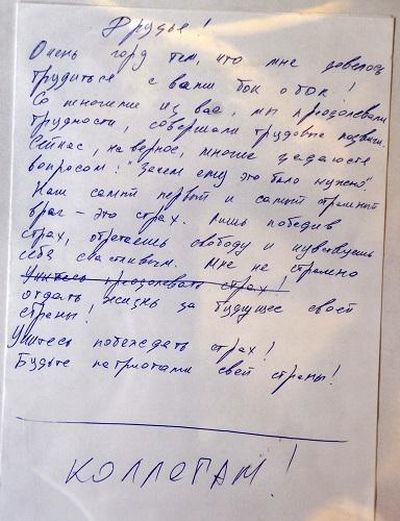 Друзья!
Очень горд тем, что мне довелось
трудиться с вами бок о бок!
Со многими из вас, мы преодолевали
трудности, совершали трудовые подвиги.
Сейчас, наверное, многие задаются
вопросом: "Зачем ему это было нужно".
Наш самый первый и самый страшный
враг - это страх. Лишь победив
страх, обретаешь свободу и чувствуешь
себя счастливым. Мне не страшно
Учитесь преодолевать страх!
отдать жизнь за будущее своей
страны!
Учитесь побеждать страх!
Будьте патриотами своей страны!
КОЛЛЕГАМ!